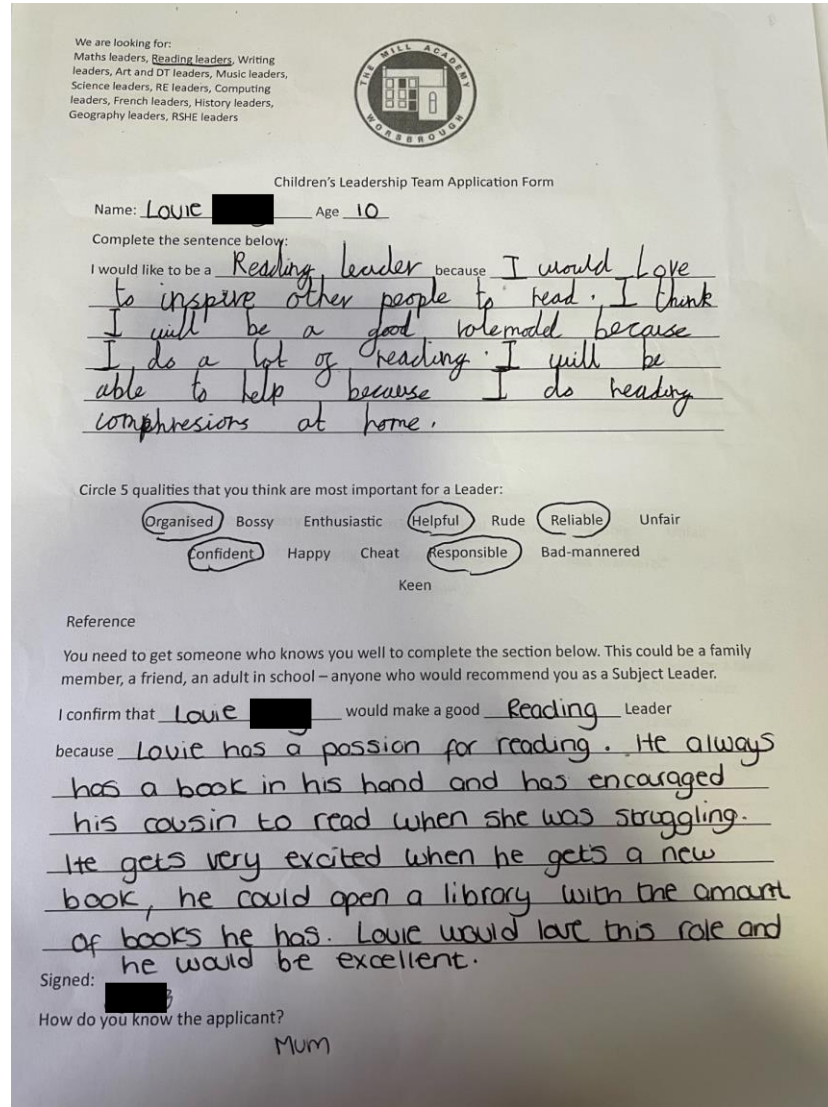 We are looking for:
Maths leaders, Reading leaders, Writing
leaders, Art and DT leaders, Music leaders,
Science leaders, RE leaders, Computing
leaders, French leaders, History leaders,
Geography leaders, RSHE leaders
THE MILL ACADEMY
WORSBROUGH
Children's Leadership Team Application Form
Name: Louie Age 10
Complete the sentence below:
I would like to be a Reading leader because I would Love
to inspire other people to read. I think
I will be a good rolemodel because
I do a lot of reading. I will be
able to help because I do reading
comphresions at home.
Circle 5 qualities that you think are most important for a Leader:
Organised Bossy Enthusiastic Helpful Rude Reliable Unfair
Confident Happy Cheat Responsible Bad-mannered
Keen
Reference
You need to get someone who knows you well to complete the section below. This could be a family
member, a friend, an adult in school – anyone who would recommend you as a Subject Leader.
I confirm that Louie would make a good Reading Leader
because Louie has a passion for reading. He always
has a book in his hand and has encouraged
his cousin to read when she was struggling.
He gets very excited when he gets a new
book, he could open a library with the amount
of books he has. Louie would love this role and
he would be excellent.
Signed:
How do you know the applicant?
Mum